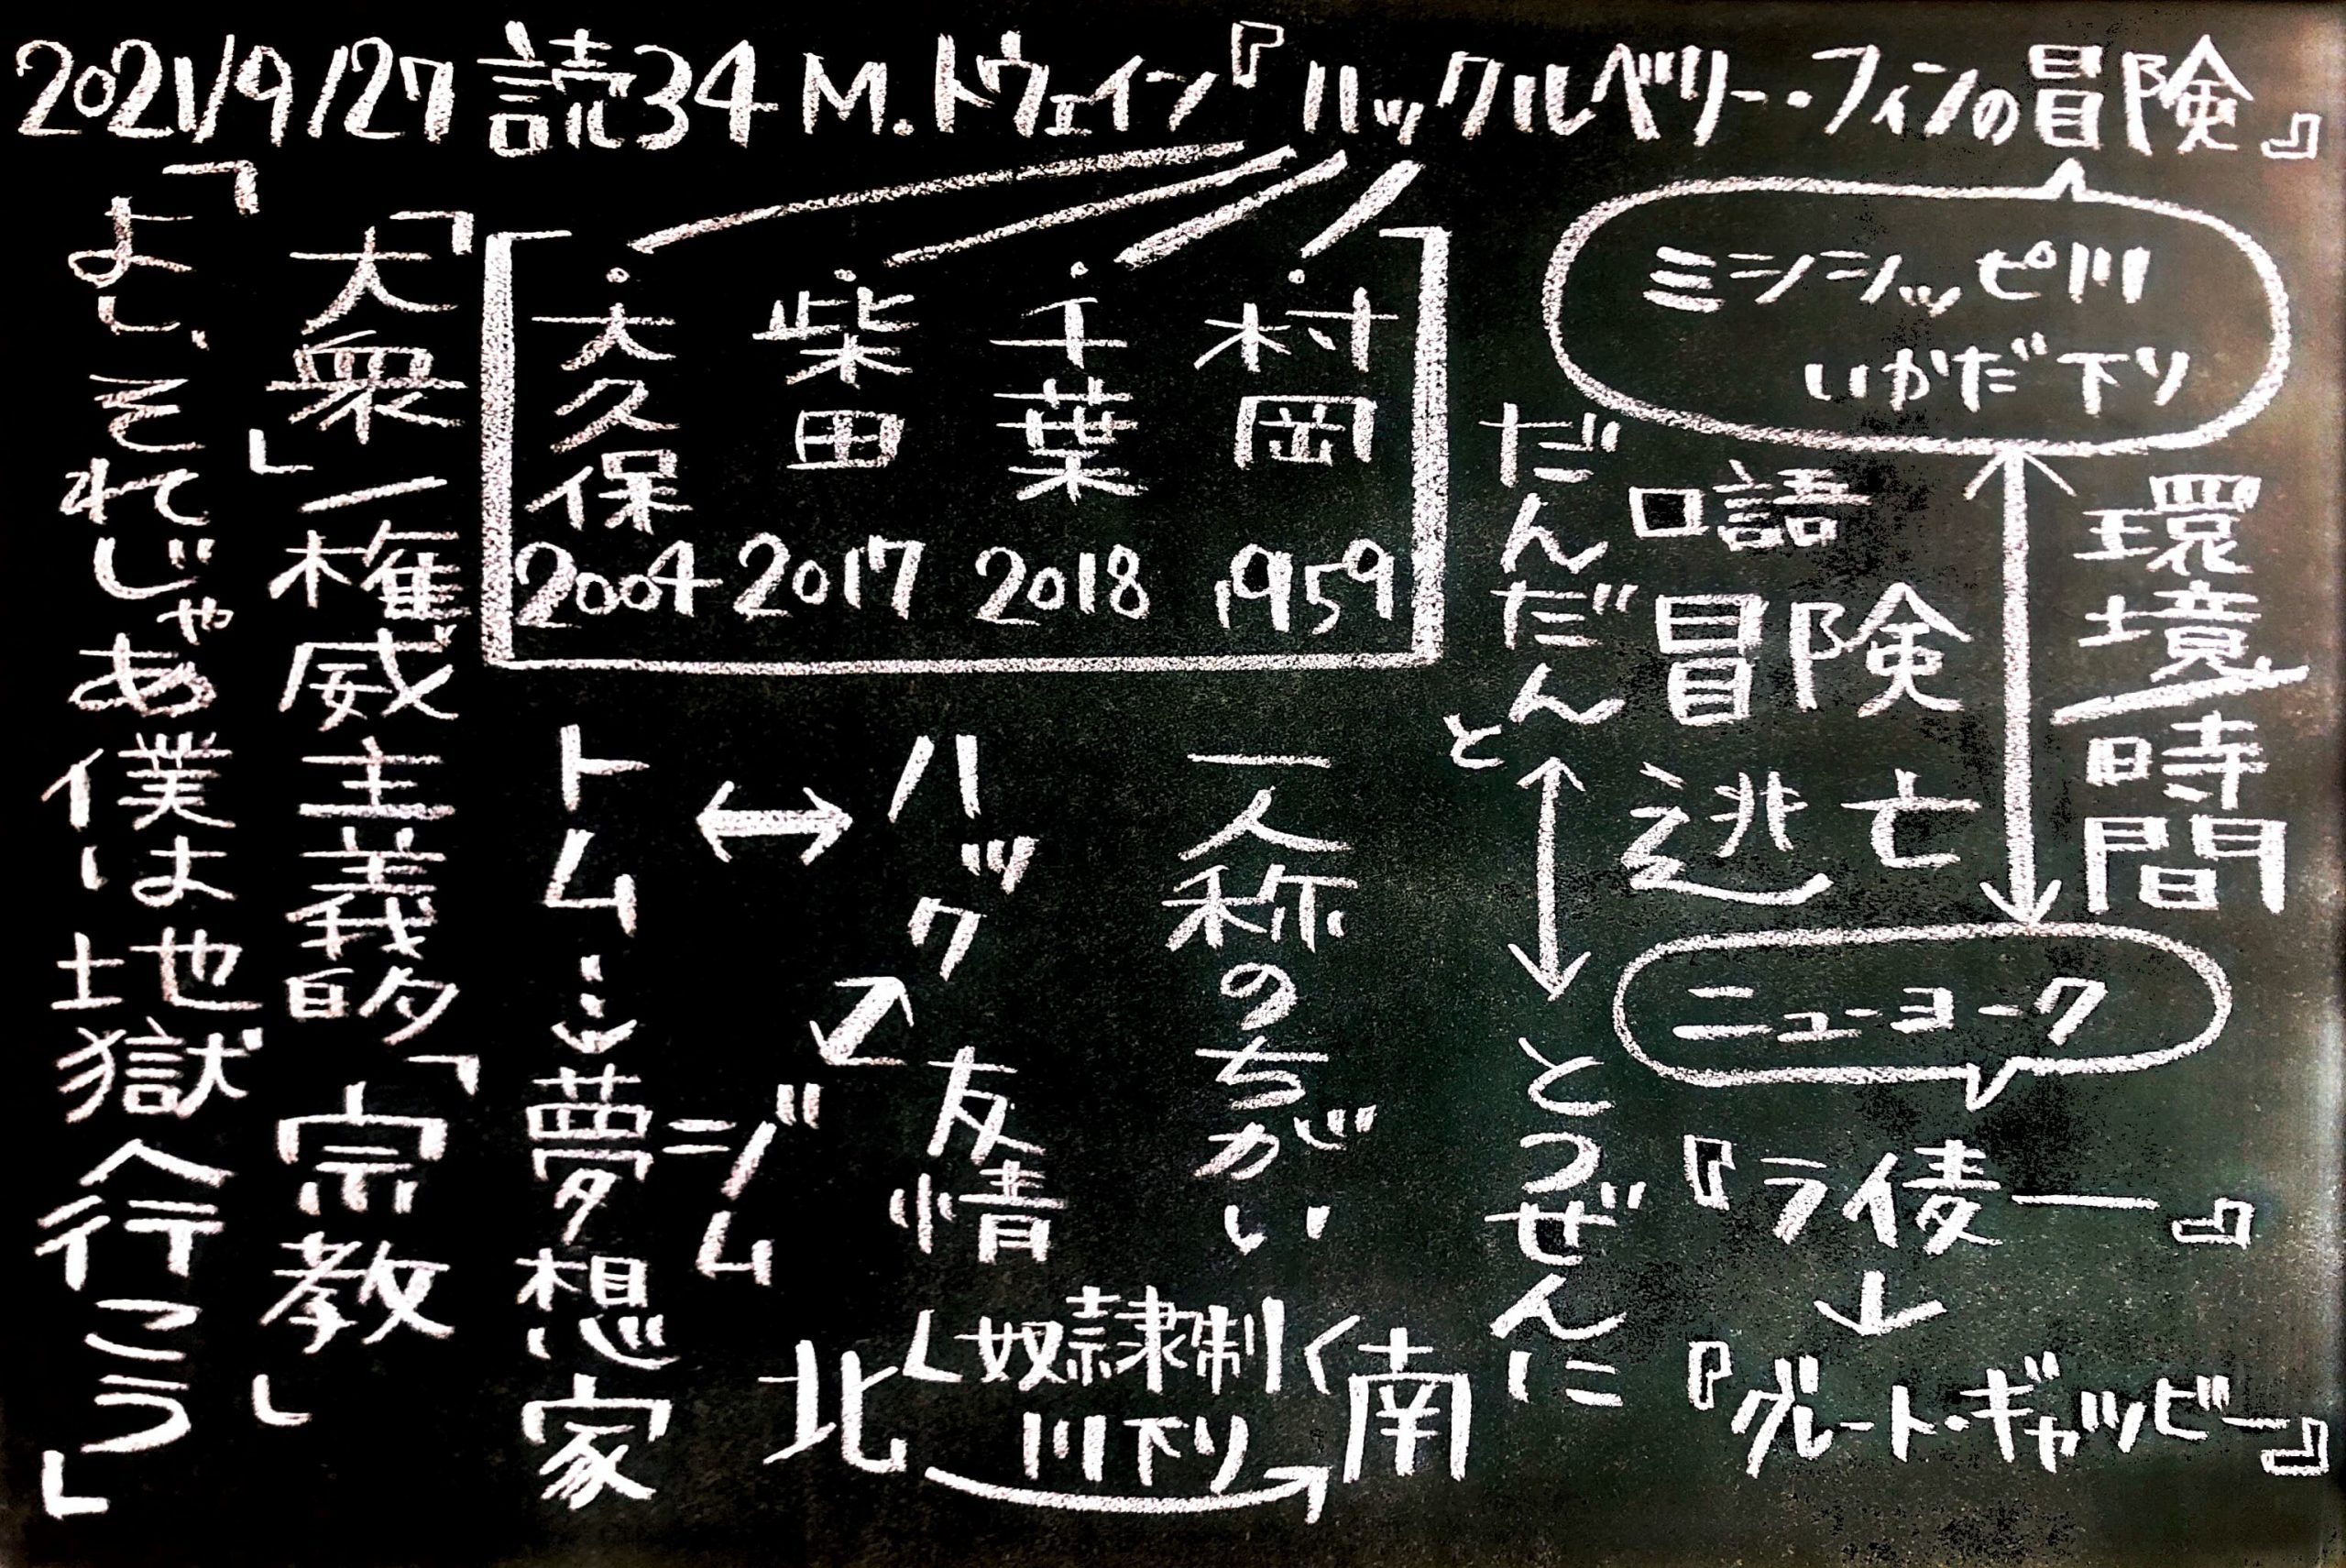 2021/9/27 読34 M.トウェイン『ハックルベリー・フィンの冒険』
ミシシッピ川
いかだ下り
環境/時間
口語
冒険
逃亡
ニューヨーク
『ライ麦ー』
↓
『グレート・ギャツビー』
だんだんと
↔
とつぜんに
・村岡
1959
・千葉
2018
・柴田
2017
・大久保
2004
一人称のちがい
ハック
↔
友情
ジム
↔
トム…夢想家
北<奴隷制<南
川下り
「大衆」ー権威主義的「宗教」
「よし、それじゃあ僕は地獄へ行こう」